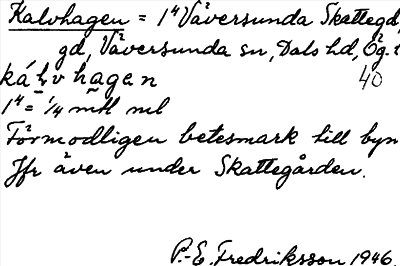 Kalvhagen = 1⁴ Väversunda Skattegd,
gd, Väversunda sn, Dals hd, Ög.
kálv hagen 40
1⁴ = ¼ mtl ml
Förmodligen betesmark till byn
Jfr även under Skattegården.
P.-E. Fredriksson 1946.